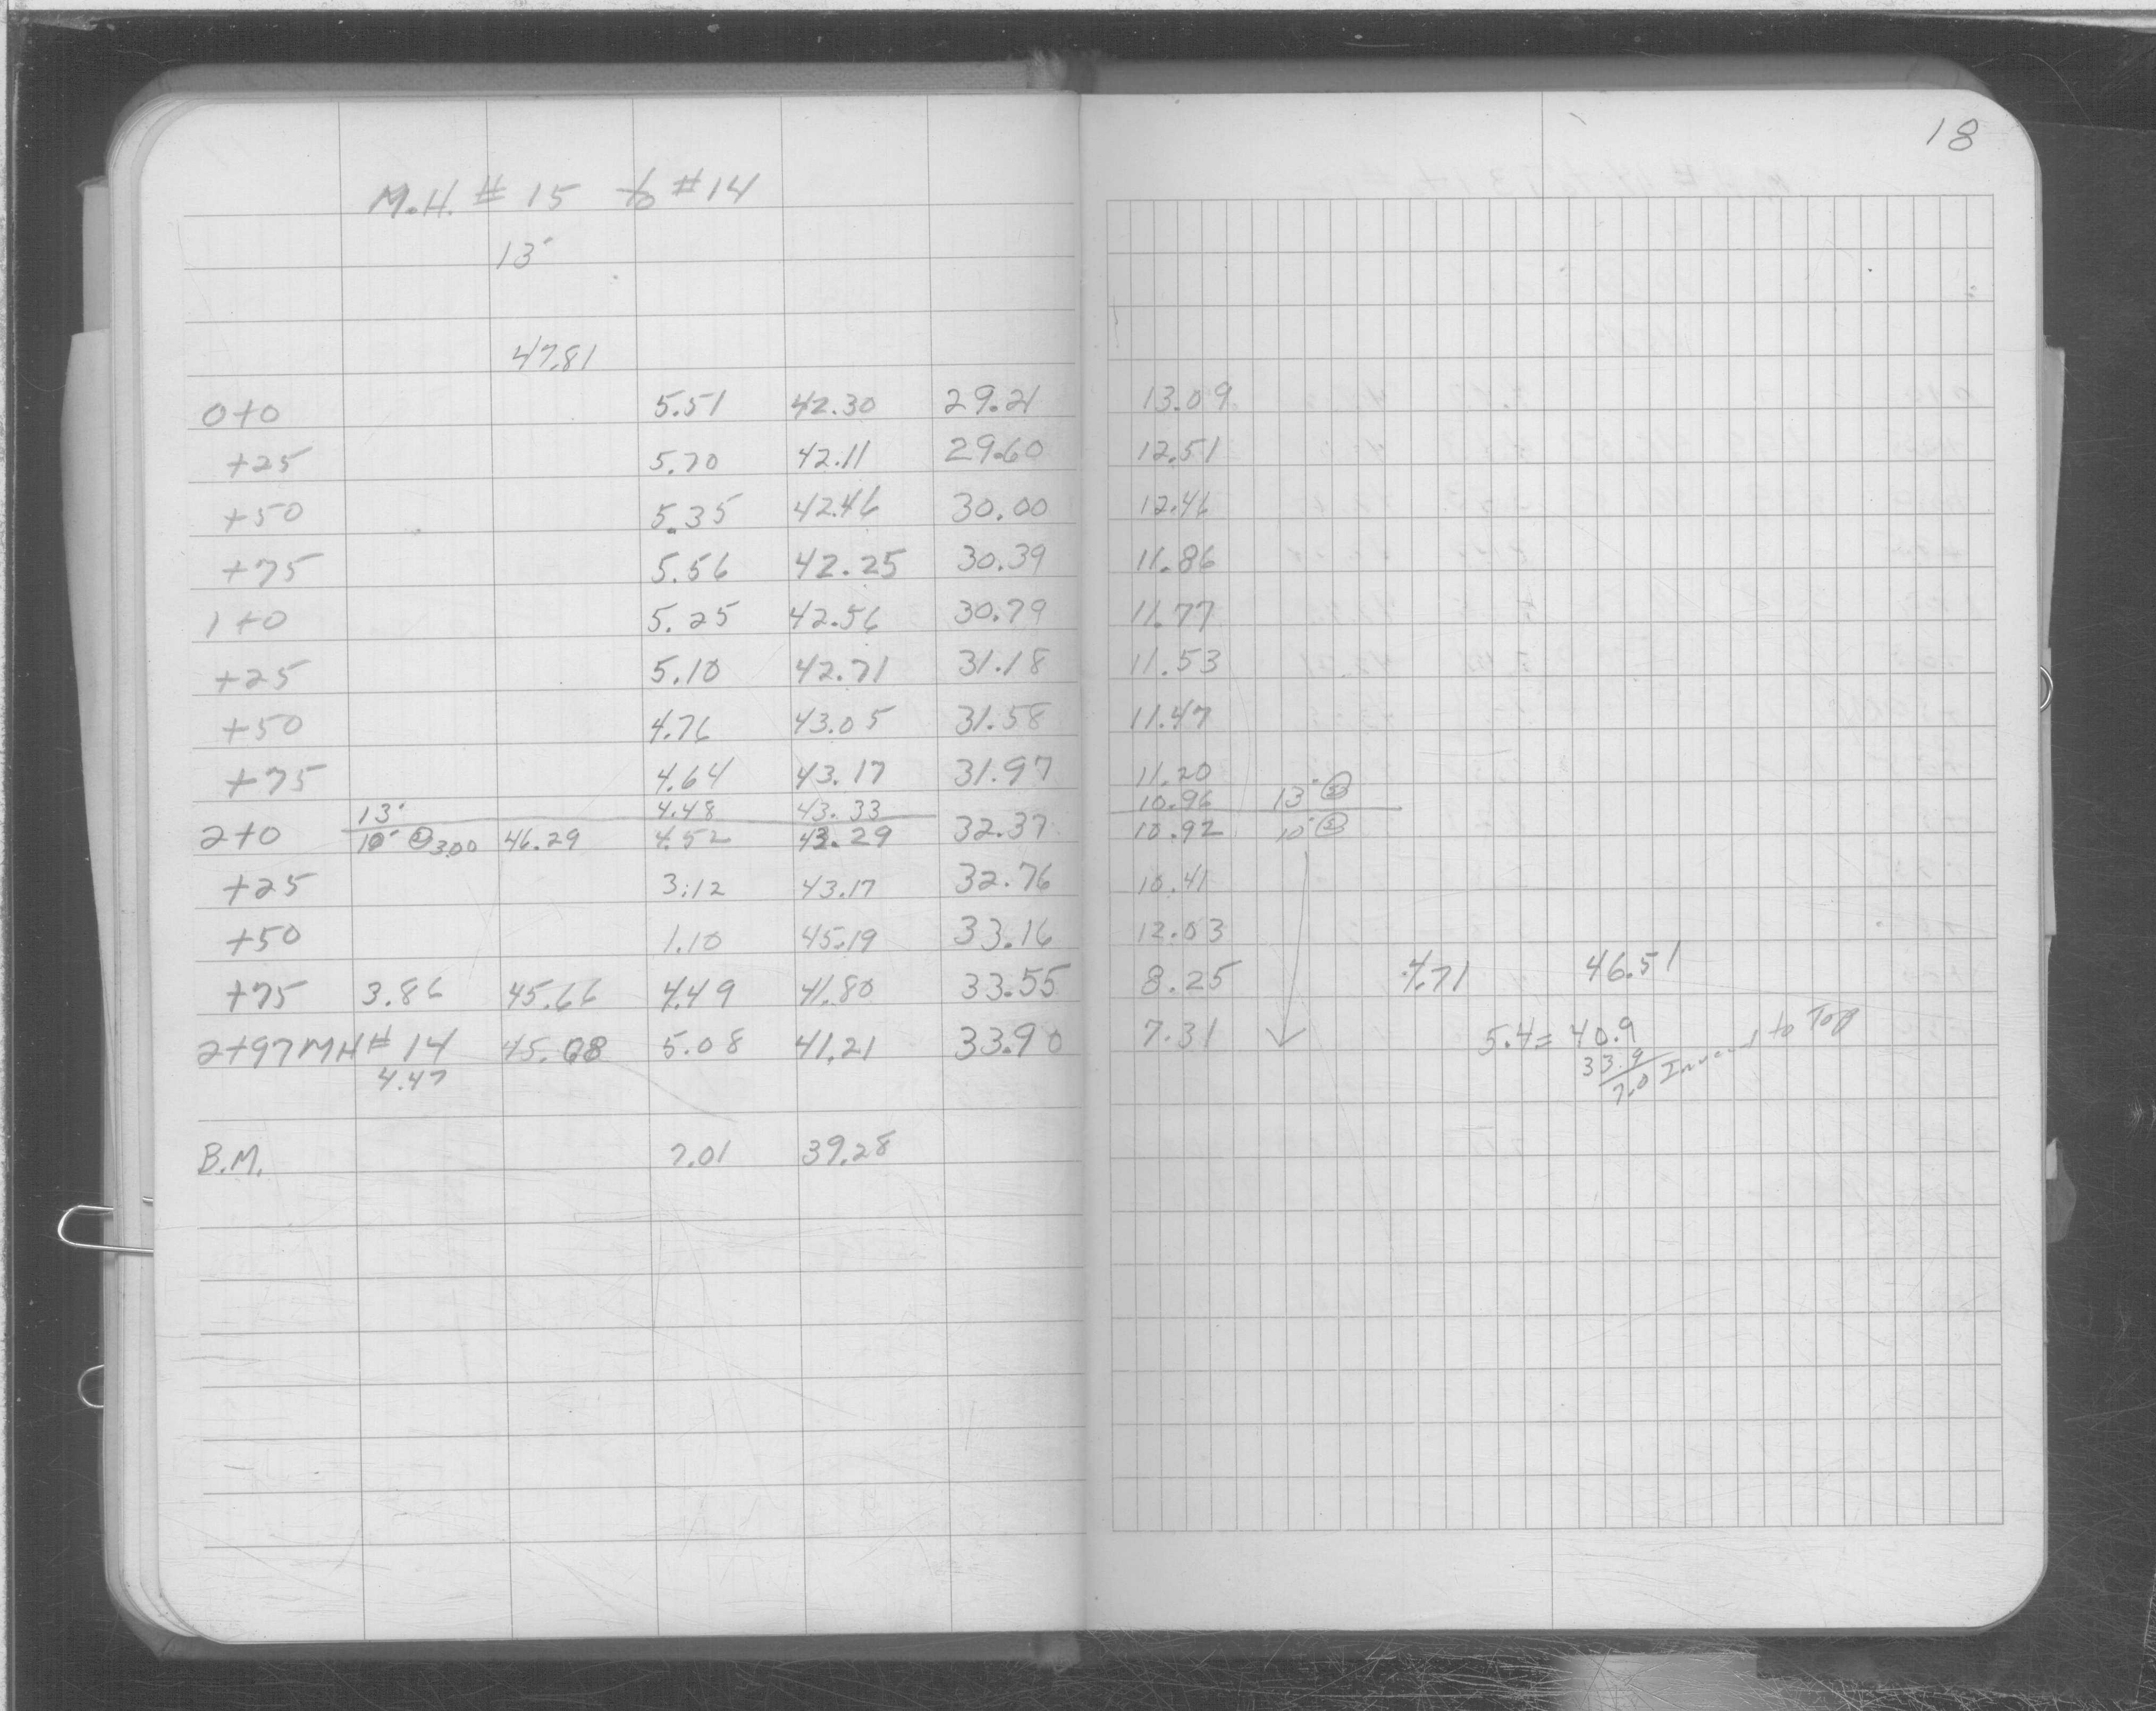 18
M.H. # 15 to #14
13'
47.81
0+0 5.51 42.30 29.21 13.09
+25 5.70 42.11 29.60 12.51
+50 5.35 42.46 30.00 12.46
+75 5.56 42.25 30.39 11.86
1+0 5.25 42.56 30.79 11.77
+25 5.10 42.71 31.18 11.53
+50 4.76 43.05 31.58 11.47
+75 4.64 43.17 31.97 11.20
13' 4.48 43.33 10.96 13'
2+0 10' 3.00 46.29 4.52 43.29 32.37 10.92 10'
+25 3.12 43.17 32.76 10.41
+50 1.10 45.19 33.16 12.03
+75 3.86 45.66 4.49 41.80 33.55 8.25 4.71 46.51
2+97 MH # 14 45.68 5.08 41.21 33.90 7.31 5.4= 40.9
4.47 33.9
7.0 Invert to Top
B.M. 7.01 39.28